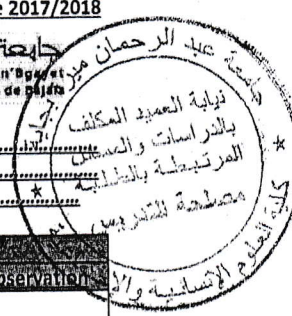 e 2017/2018
جامعة
n'Bgayet
de Béjaïa
جامعة عبد الرحمان ميرة بجاية
نيابة العميد المكلف
بالدراسات والمسائل
المرتبطة بالطلبة
مصلحة التدريس
كلية العلوم الإنسانية والا
observation